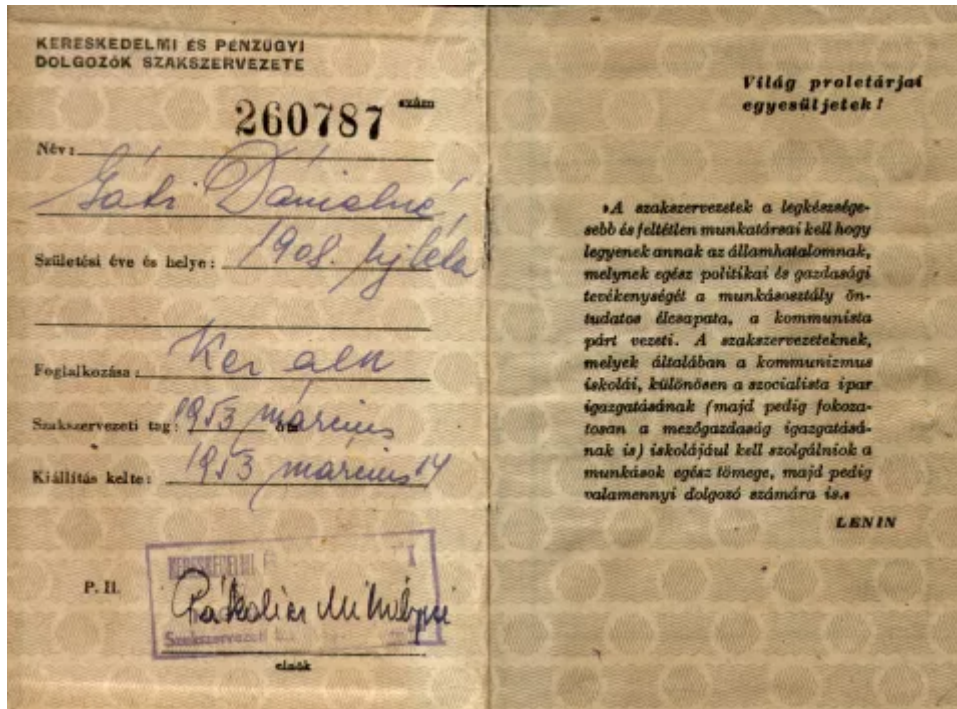 KERESKEDELMI ÉS PÉNZÜGYI
DOLGOZÓK SZAKSZERVEZETE
260787 szám
Név:
Gáti Dánielné
Születési éve és helye: 1908. Ujléta
Foglalkozása: Ker alk
Szakszervezeti tag: 1953 március
Kiállítás kelte: 1953 március 14
KERESKEDELMI ÉS
P. H.
Mihályné
Szakszervezeti
elnök
Világ proletárjai
egyesüljetek!
»A szakszervezetek a legkészsége-
sebb és feltétlen munkatársai kell hogy
legyenek annak az államhatalomnak,
melynek egész politikai és gazdasági
tevékenységét a munkásosztály ön-
tudatos élcsapata, a kommunista
párt vezeti. A szakszervezeteknek,
melyek általában a kommunizmus
iskolái, különösen a szocialista ipar
igazgatásának (majd pedig fokoza-
tosan a mezőgazdaság igazgatásá-
nak is) iskolájául kell szolgálniok a
munkások egész tömege, majd pedig
valamennyi dolgozó számára is.«
LENIN